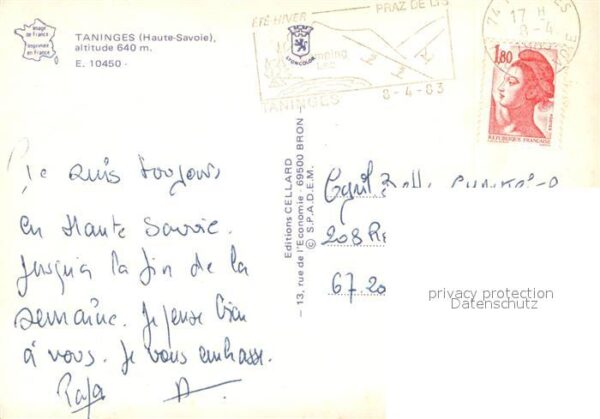 Image
de France
Imprimée
en France
TANINGES (Haute-Savoie),
altitude 640 m.
E. 10450 -
ÉTÉ-HIVER
PRAZ DE LYS
LYONCOLOR
camping
TANINGES
8-4-83
17 H
8-4
1,80
RÉPUBLIQUE FRANÇAISE
Je suis toujours
en Haute Savoie.
jusqu'à la fin de la
semaine. Je pense bien
à vous. Je vous embrasse.
Papa
Editions CELLARD
- 13, rue de l'Economie - 69500 BRON
© S.P.A.D.E.M.
Cyril
208 R
67.20
privacy protection
Datenschutz